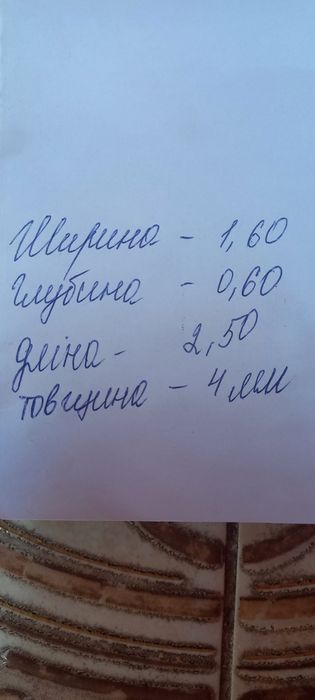 Ширина - 1,60
глубина - 0,60
длїна - 2,50
товщина - 4 мм